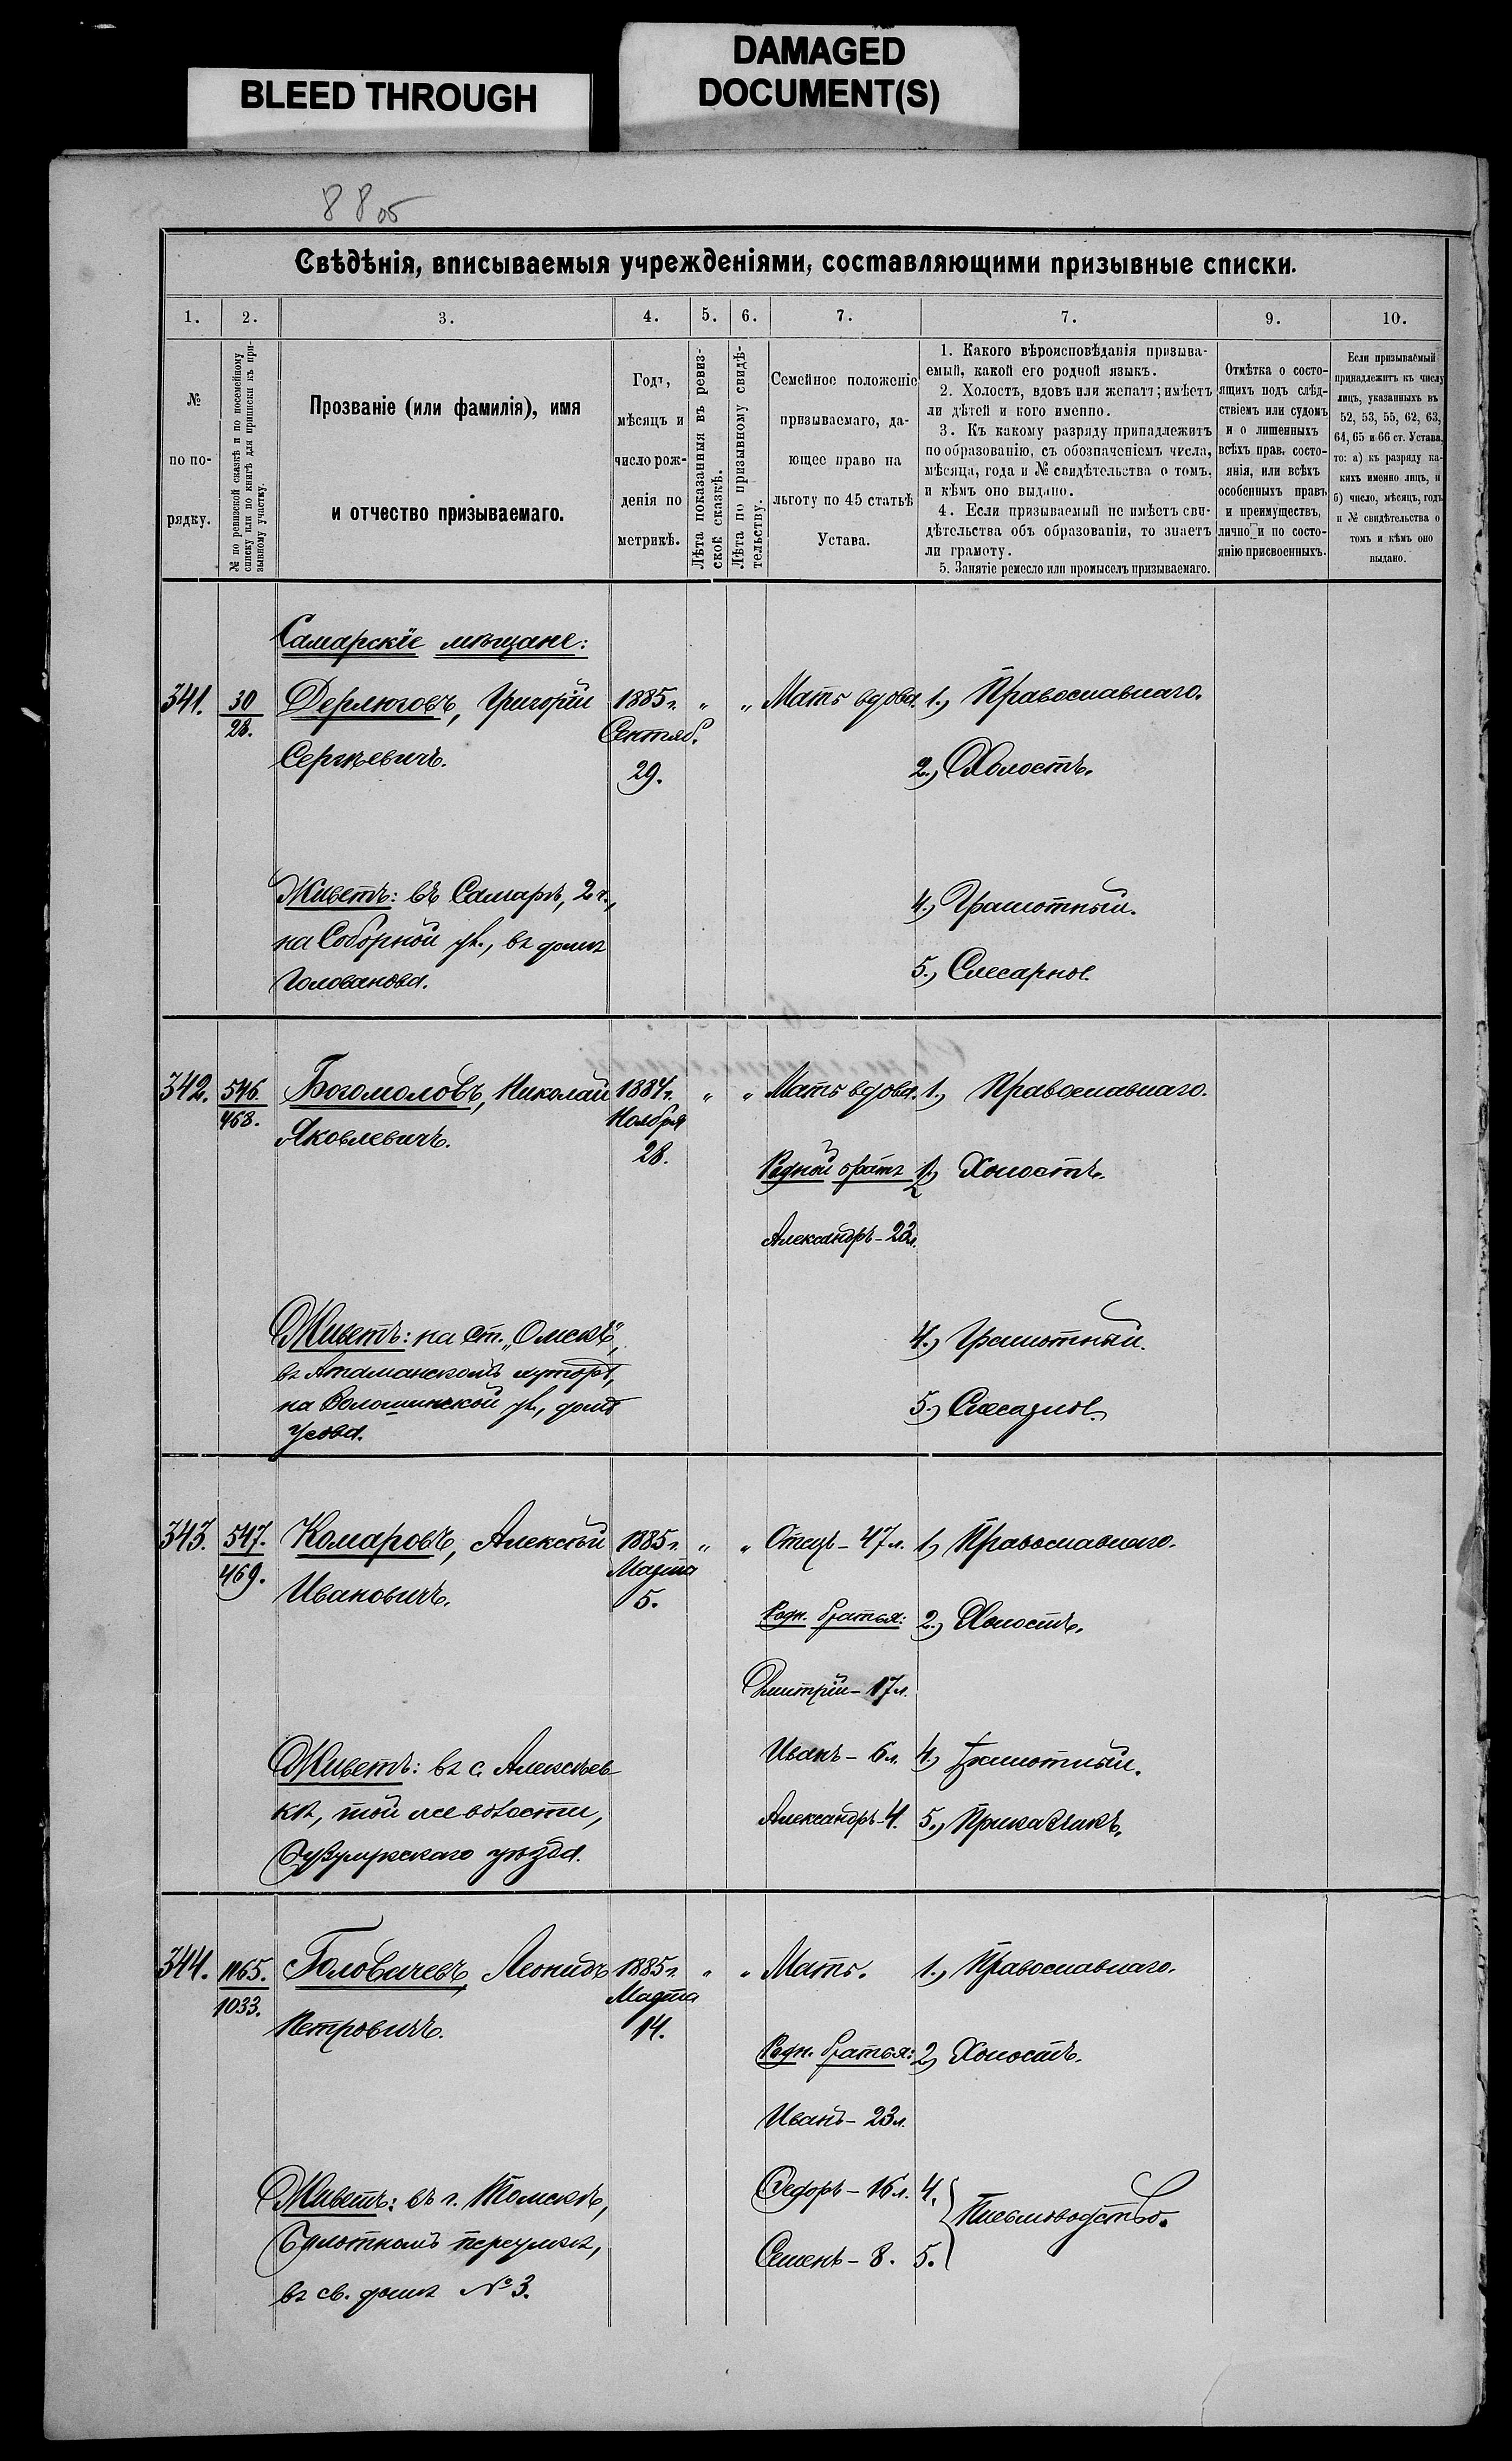 BLEED THROUGH
DAMAGED
DOCUMENT(S)
88 об
Свѣдѣнія, вписываемыя учрежденіями, составляющими призывные списки.
1. 2. 3. 4. 5. 6. 7. 7. 9. 10.
№
по по-
рядку.
№ по ревизской сказкѣ и по посемейному
списку или по книгѣ для приписки къ при-
зывному участку.
Прозваніе (или фамилія), имя
и отчество призываемаго.
Годъ,
мѣсяцъ и
число рож-
денія по
метрикѣ.
Лѣта показанныя въ ревиз-
ской сказкѣ.
Лѣта по призывному свидѣ-
тельству.
Семейное положеніе
призываемаго, да-
ющее право на
льготу по 45 статьѣ
Устава.
1. Какого вѣроисповѣданія призыва-
емый, какой его родной языкъ.
2. Холостъ, вдовъ или женатъ; имѣетъ
ли дѣтей и кого именно.
3. Къ какому разряду принадлежитъ
по образованію, съ обозначеніемъ числа,
мѣсяца, года и № свидѣтельства о томъ,
и кѣмъ оно выдано.
4. Если призываемый не имѣетъ сви-
дѣтельства объ образованіи, то знаетъ
ли грамоту.
5. Занятіе ремесло или промыселъ призываемаго.
Отмѣтка о состо-
ящихъ подъ слѣд-
ствіемъ или судомъ
и о лишенныхъ
всѣхъ прав, состо-
янія, или всѣхъ
особенныхъ правъ
и преимуществъ,
лично и по состо-
янію присвоенныхъ.
Если призываемый
принадлежитъ къ числу
лицъ, указанныхъ въ
52, 53, 55, 62, 63,
64, 65 и 66 ст. Устава,
то: а) къ разряду ка-
кихъ именно лицъ, и
б) число, мѣсяцъ, годъ
и № свидѣтельства о
томъ и кѣмъ оно
выдано.
Самарскіе мѣщане:
341. 30 Дерлюговъ, Григорій 1885 г. " " Мать вдова. 1.) Православнаго.
28. Сергѣевичъ. Сентяб.
29. 2.) Холостъ.
Живетъ: въ Самарѣ, 2 ч., 4.) Грамотный.
на Соборной ул., въ домѣ
Голованова. 5.) Слесарное.
342. 546. Богомоловъ, Николай 1884 г. " " Мать вдова. 1.) Православнаго.
468. Яковлевичъ. Ноября
28. Родной братъ 2) Холостъ.
Александръ - 23 л.
Живетъ: на ст. „Омскъ", 4.) Грамотный.
въ Атаманскомъ хуторѣ,
на Волошинской ул., домъ 5.) Слесарное.
Усова.
343. 547. Комаровъ, Алексѣй 1885 г. " " Отецъ - 47 л. 1.) Православнаго.
469. Ивановичъ. Марта
5. Родн. братья: 2.) Холостъ.
Дмитрій - 17 л.
Живетъ: въ с. Алексѣев- Иванъ - 6 л. 4.) Грамотный.
кѣ, той же волости, Александръ - 4. 5.) Приказчикъ.
Бузулукскаго уѣзда.
344. 1165. Головачевъ, Леонидъ 1885 г. " " Мать. 1.) Православнаго.
1033. Петровичъ. Марта
14. Родн. братья: 2) Холостъ.
Иванъ - 23 л.
Живетъ: въ г. Томскѣ, Федоръ - 16 л. 4. Письмоводство.
Болотномъ переулкѣ, Семенъ - 8. 5.
въ св. домѣ № 3.